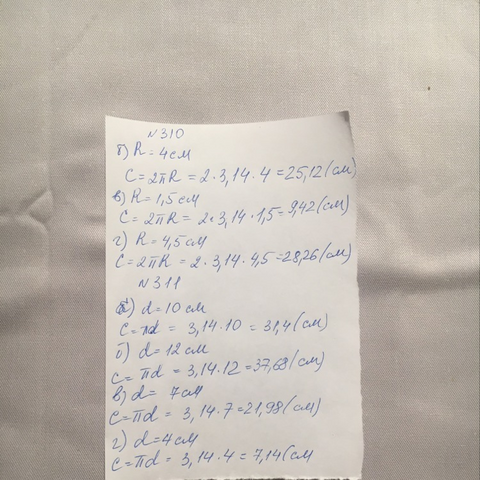 №310
б) R = 4 см
C = 2πR = 2 · 3,14 · 4 = 25,12 (см)
в) R = 1,5 см
C = 2πR = 2 · 3,14 · 1,5 = 9,42 (см)
г) R = 4,5 см
C = 2πR = 2 · 3,14 · 4,5 = 28,26 (см)
№311
а) d = 10 см
C = πd = 3,14 · 10 = 31,4 (см)
б) d = 12 см
C = πd = 3,14 · 12 = 37,68 (см)
в) d = 7 см
C = πd = 3,14 · 7 = 21,98 (см)
г) d = 4 см
C = πd = 3,14 · 4 = 7,14 (см